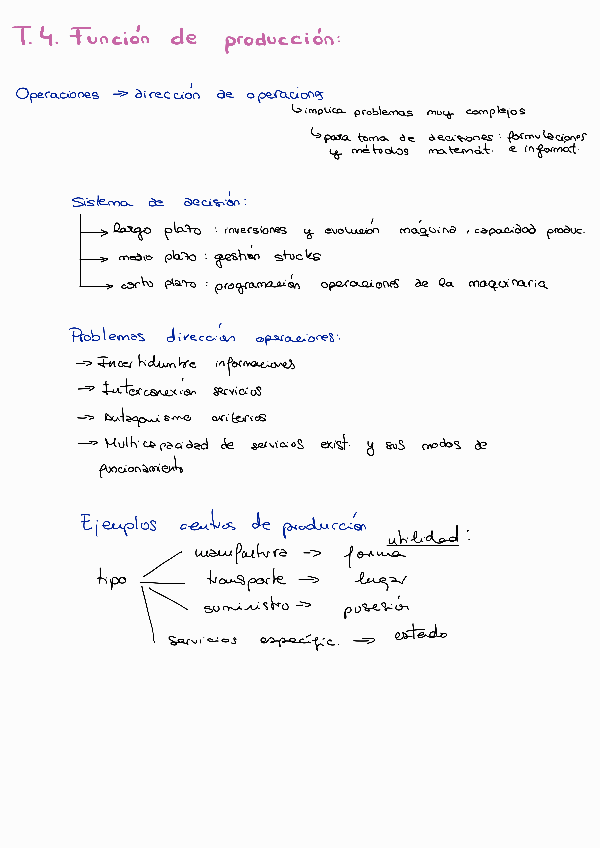 T.4. Función de producción:
Operaciones → dirección de operaciones
↳ implica problemas muy complejos
↳ para toma de decisiones: formulaciones
y métodos matemát. e informat.
Sistema de decisión:
→ largo plazo : inversiones y evolución máquina, capacidad produc.
→ medio plazo : gestión stocks
→ corto plazo : programación operaciones de la maquinaria
Problemas dirección operaciones:
→ Incertidumbre informaciones
→ Interconexión servicios
→ Antagonismo criterios
→ Multicapacidad de servicios exist. y sus modos de
funcionamiento
Ejemplos centros de producción
utilidad:
manufactura → forma
tipo transporte → lugar
suministro → posesión
servicios específic. → estado